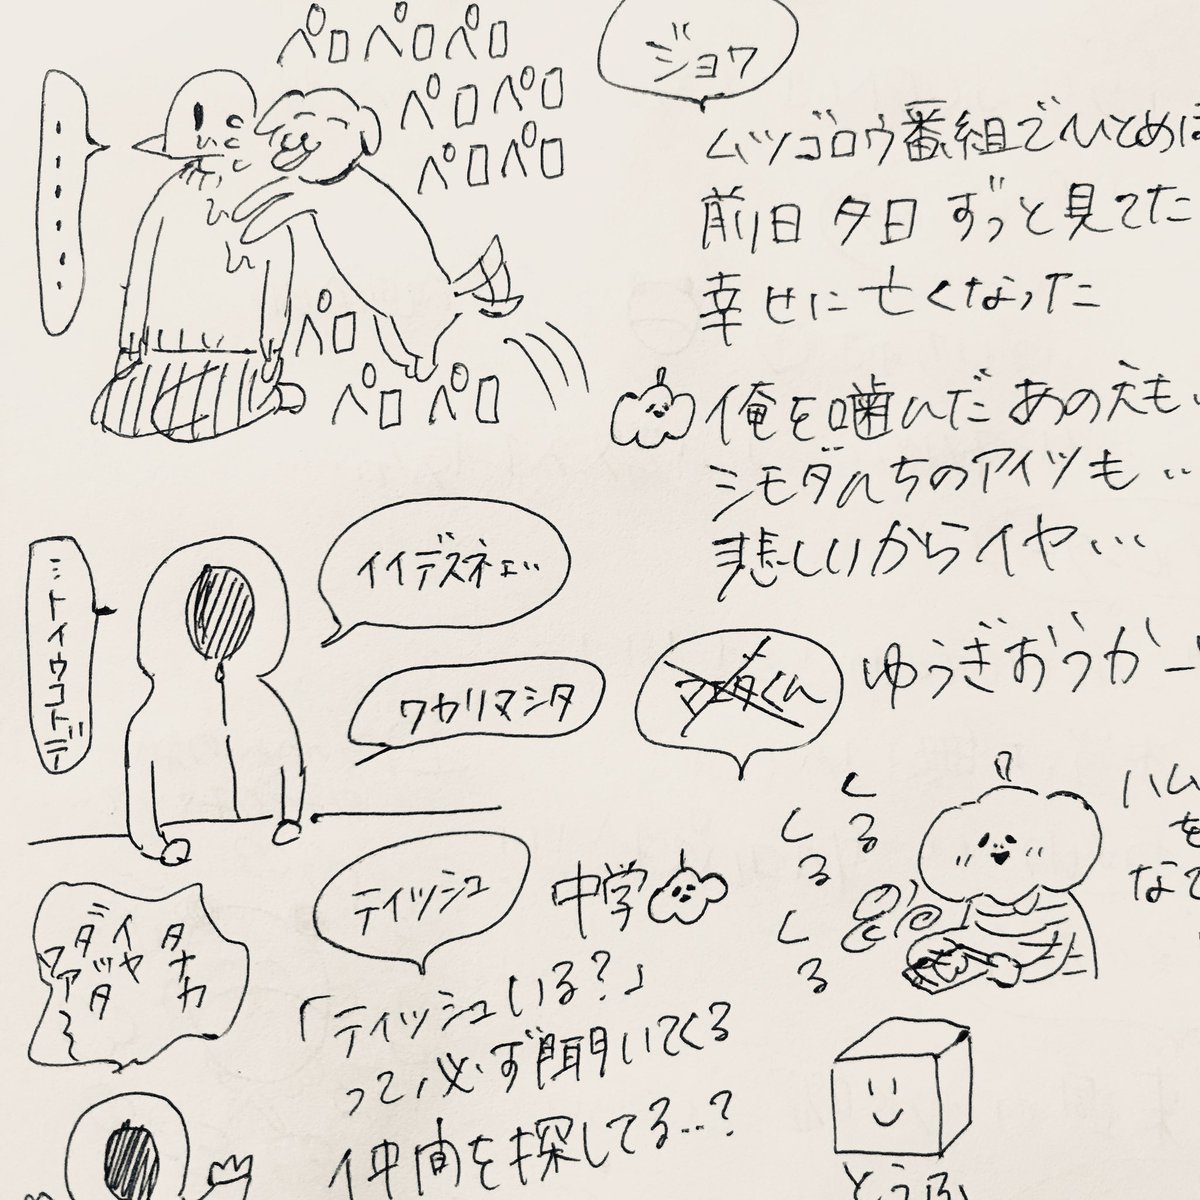 ペロペロペロ
ペロペロ
ペロペロ
ペロ
ペロペロ
ジョワ
ムツゴロウ番組でひとめぼ
前日 夕日 ずっと見てた
幸せに亡くなった
俺を噛んだあの犬も
シモダんちのアイツも…
悲しいからイヤ…
イイデスネェ…
ワカリマシタ
ミトイウコトデ
ゆうぎおうカー
ハム
を
なで
くる
くる
くる
タナカ
イヤ
ティッシュ
中学
「ティッシュいる?」
って、必ず聞いてくる
仲間を探してる…?
とうふ